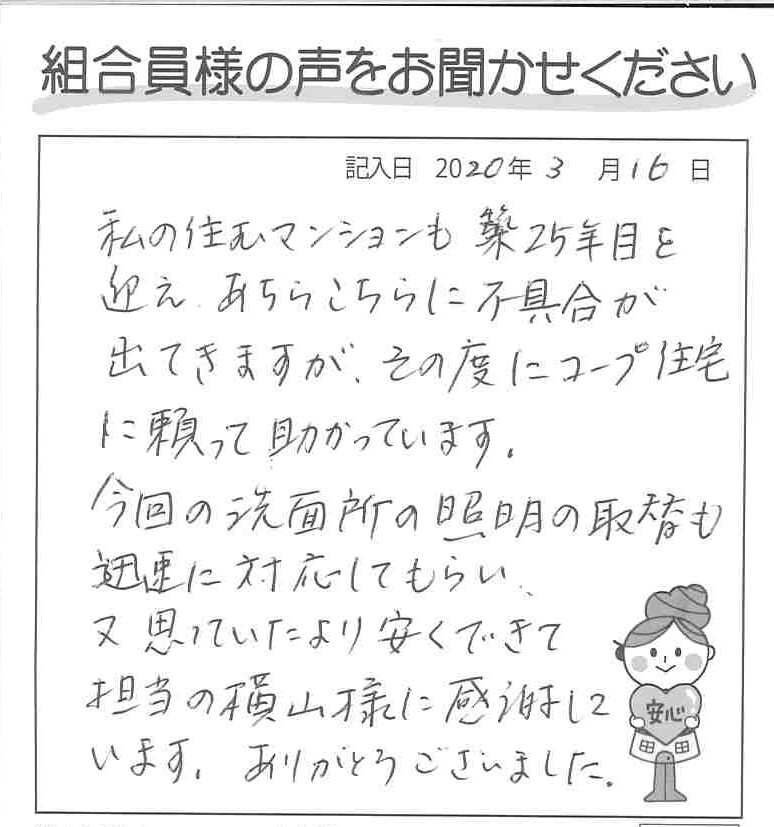 組合員様の声をお聞かせください
記入日 2020年 3 月 16 日
私の住むマンションも築25年目を
迎え、あちらこちらに不具合が
出てきますが、その度にコープ住宅
に頼って助かっています。
今回の洗面所の照明の取替も
迅速に対応してもらい、
又思っていたより安くできて
担当の横山様に感謝して
います。ありがとうございました。
安心